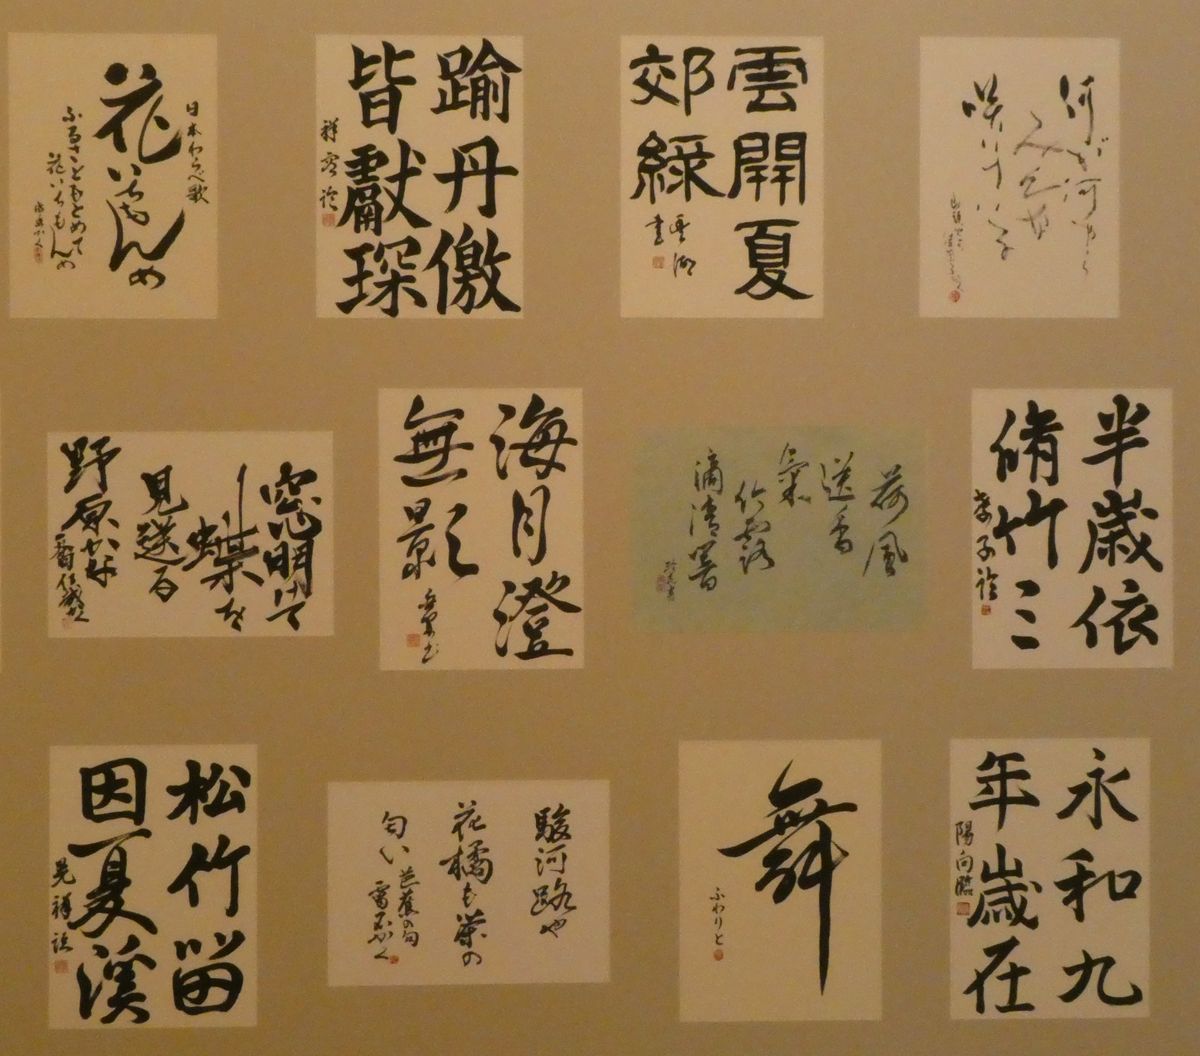 日本わらべ歌
花いちもんめ
ふるさともとめて
花いちもんめ
踰丹徼
皆獻琛
雲開夏
郊緑
書
咲
窓明けて
蝶を
見送る
野原かな
海月澄
無影
荷風
送香
氣
竹露
滴清響
半歳依
脩竹三
松竹留
因夏溪
駿河路や
花橘も茶の
匂い
芭蕉の句
舞
ふわりと
永和九
年歳在
陽向臨